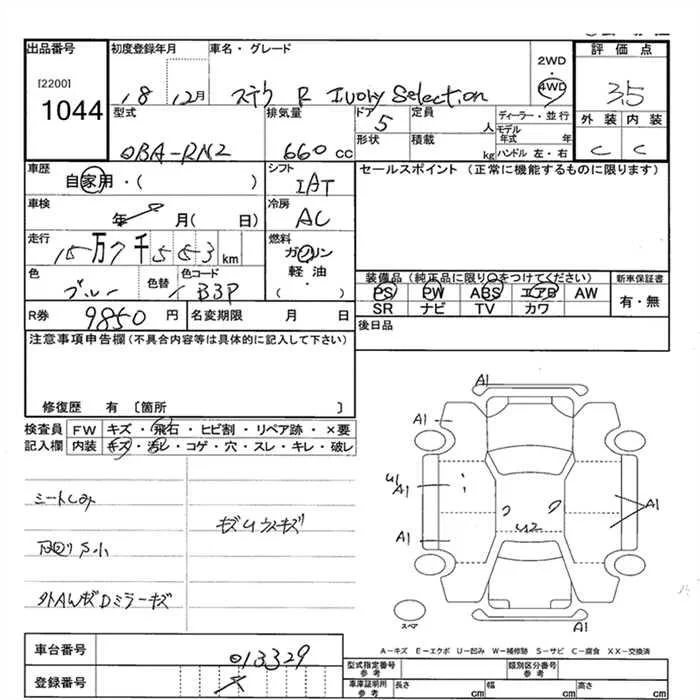 出品番号
[2200]
1044
初度登録年月
18 12月
車名・グレード
ステラ R Ivory Selection
2WD
4WD
評価点
3.5
外装 内装
C C
型式
DBA-RN2
排気量
660cc
ドア
5
形状
定員
人
積載
kg
ディーラー・並行
モデル年式 年
ハンドル 左・右
車歴
自家用・( )
シフト
IAT
セールスポイント (正常に機能するものに限ります)
車検
年 月( 日)
冷房
AC
走行
15万7千553km
燃料
ガソリン
軽油・
( )
色
ブルー
色替
イ
色コード
B3P
装備品(純正品に限り○をつけてください)
PS PW ABS エアB AW
SR ナビ TV カワ
新車保証書
有・無
R券 9850円
名変期限 月 日
後日品
注意事項申告欄(不具合内容等は具体的に記入して下さい)
修復歴 有 〔箇所 〕
検査員記入欄
FW キズ・飛石・ヒビ割・リペア跡・×要
内装 キズ・汚レ・コゲ・穴・スレ・キレ・破レ
シートしみ
下回りS小
キズUウスキズ
外AWキズDミラーキズ
A1
A1
U1
A1
A1
A1
U2
A1
スペア
A-キズ E-エクボ U-凹み W-補修跡 S-サビ C-腐食 XX-交換済
車台番号
013329
登録番号
型式指定番号
参考
類別区分番号
参考
車庫証明用
参考
長さ cm
幅 cm
高さ cm